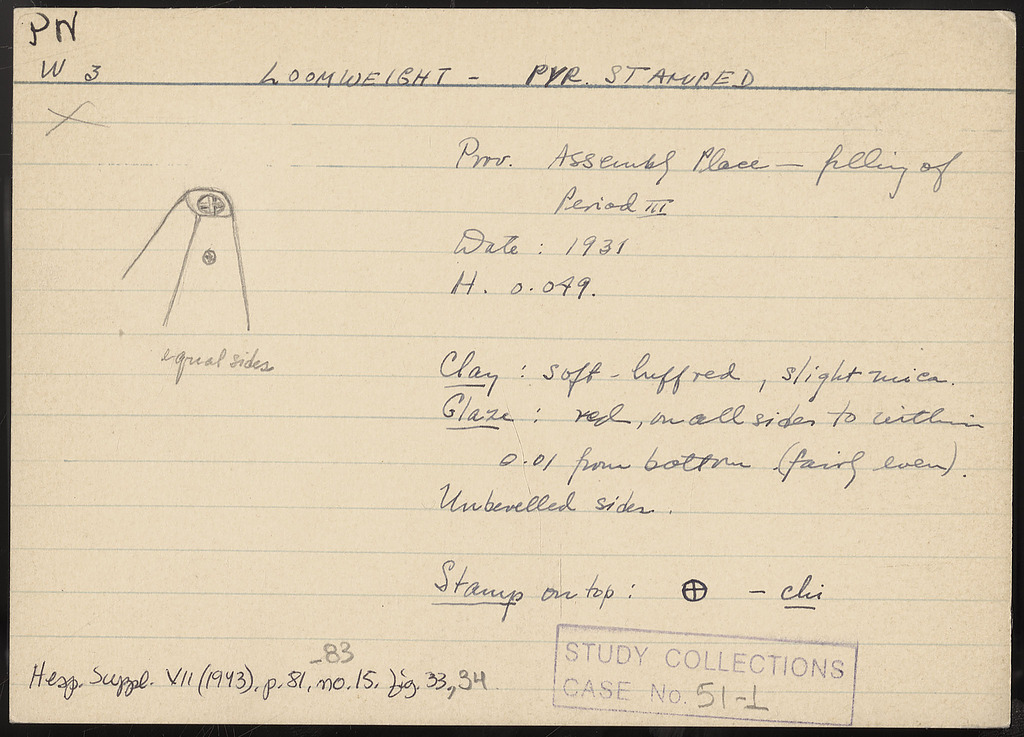 PN
W 3
LOOMWEIGHT - PYR. STAMPED
Prov. Assembly Place — filling of
Period III
Date : 1931
H. 0.049.
equal sides
Clay : soft - buff red , slight mica.
Glaze : red, on all sides to within
0.01 from bottom (fairly even).
Unbevelled sides.
Stamp on top : ⊕ - chi
-83
Hesp. Suppl. VII (1943), p. 81, no. 15, fig. 33, 34
STUDY COLLECTIONS
CASE No. 51-1